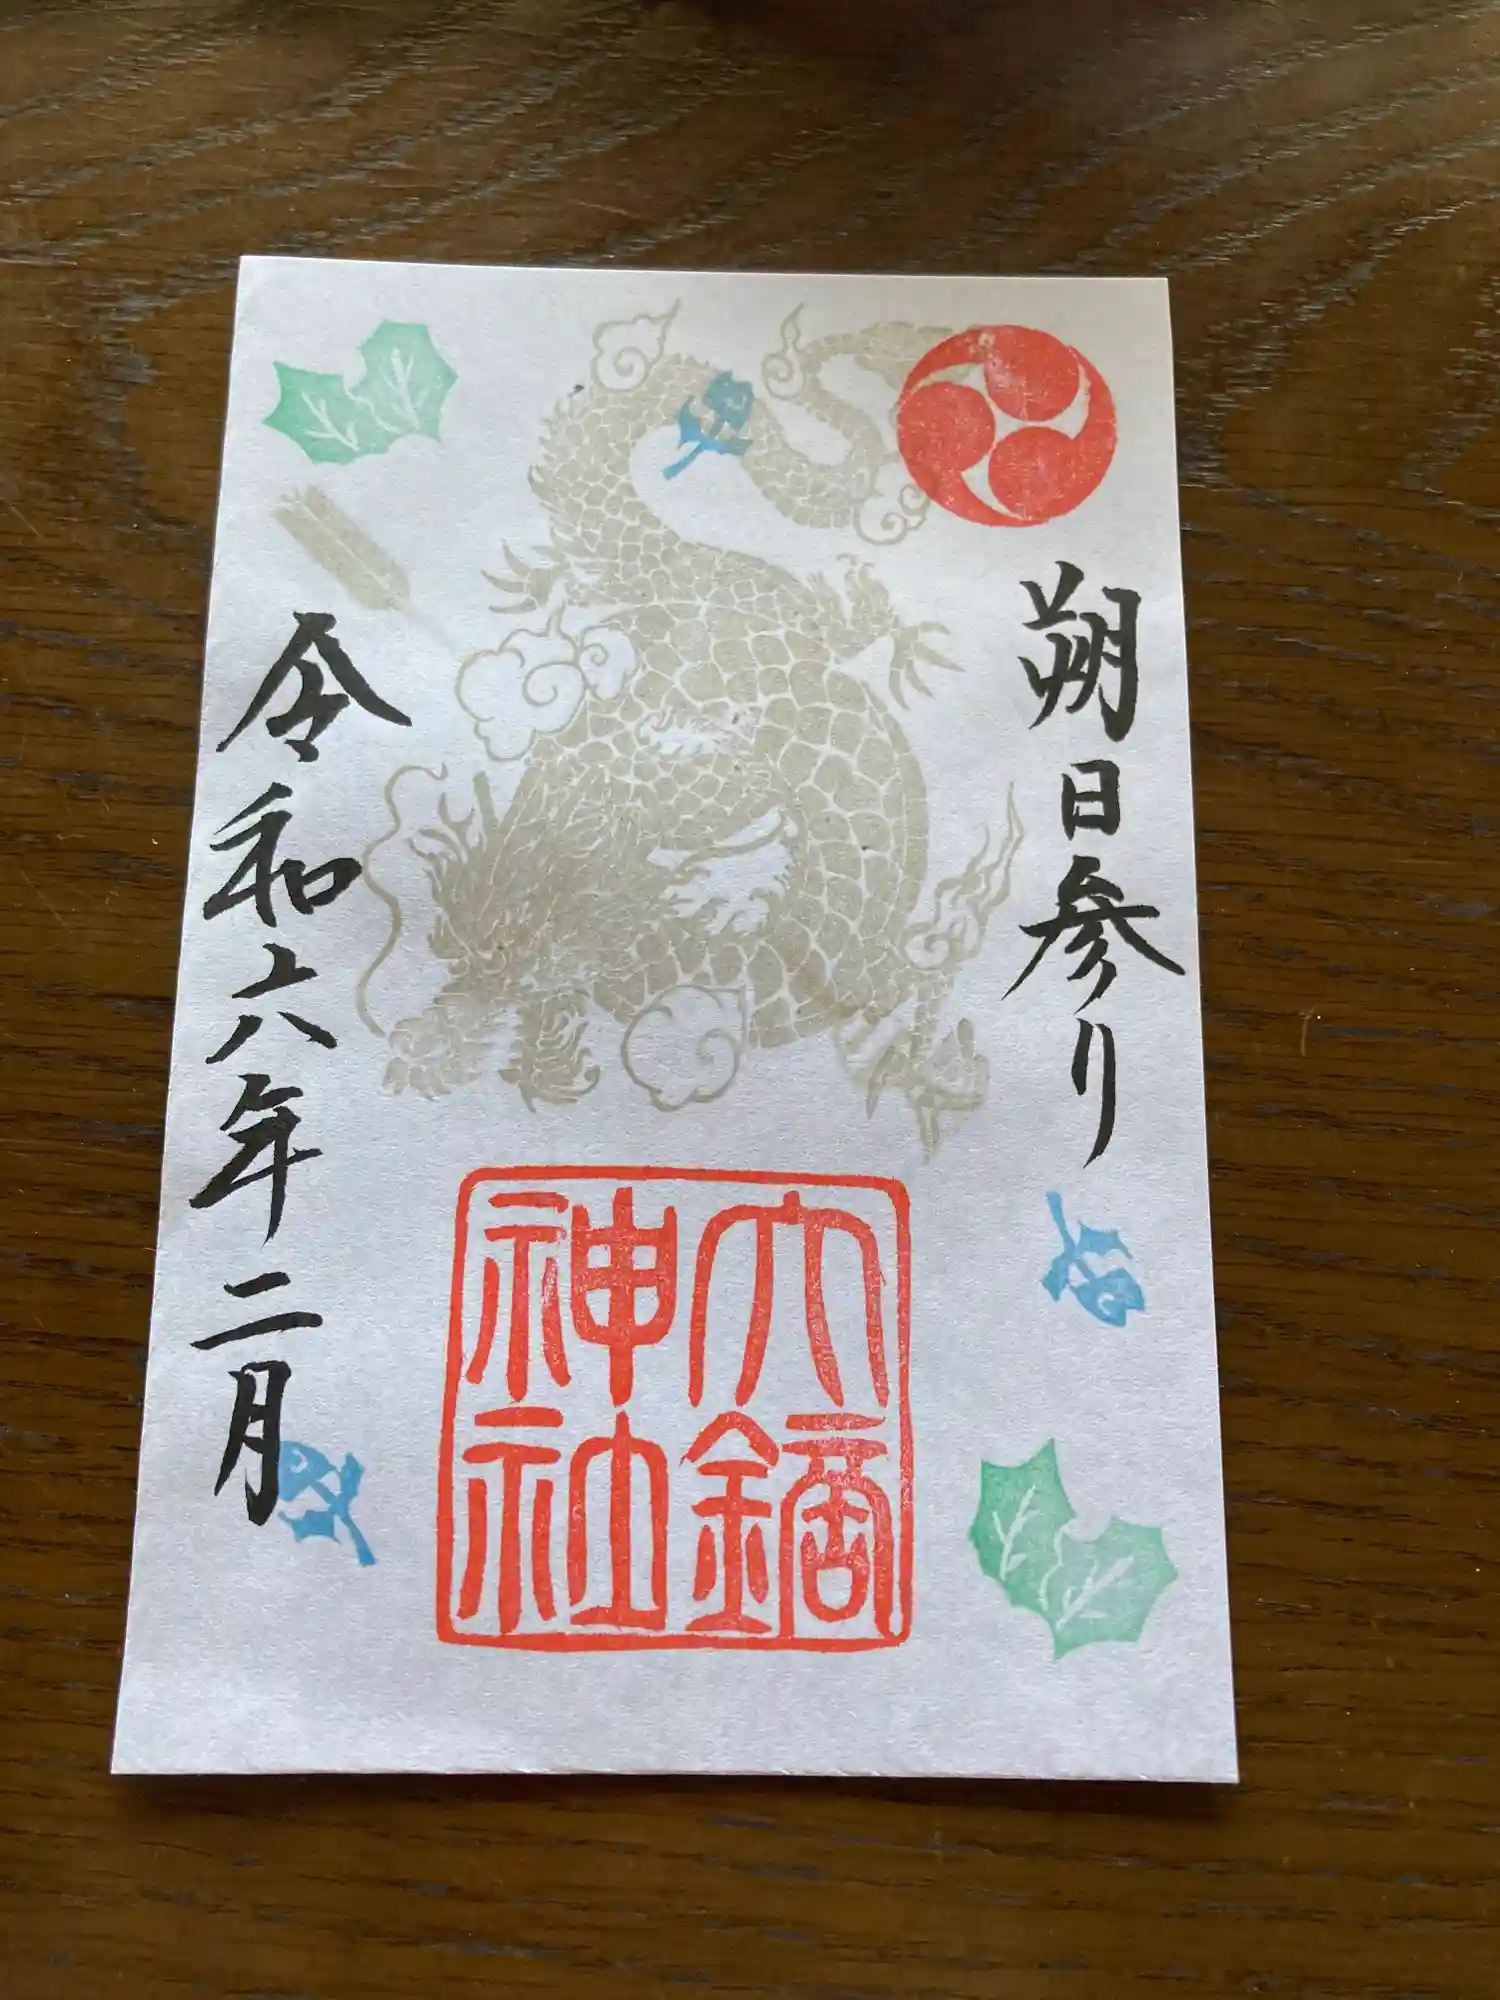 朔日参り
大鏑
神社
令和六年二月